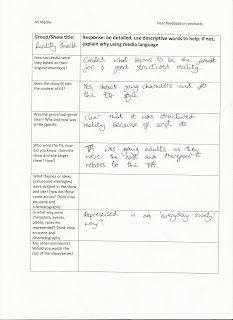 GS Media
Peer feedback on products
Group/Show title:
Reality Shock
Response: be detailed, use descriptive words to help. If not,
explain why using media language
How successful were
they based on their
original intentions?
Created what seems to be the format
for a good structured reality
Does the show fit into
the context of E4?
Yes, shows young characters and fits
the E4 style
Was the genre/sub-genre
clear? Why and how was
it? Be specific.
Clear that it was structured
reality because of script etc
Who were the TA, how
did you know. Does the
show and site target
them? How?
TA was young adults as they
were the cast and therefore it
relates to the TA.
What themes or ideas
(values and ideologies)
were evident in the show
and site? How did these
come across? Think mise
en scene and
cinematography.
In what way were
characters, events,
places, issues etc
represented? Think mise
en scene and
cinematography
Represented in an 'everyday society'
way?
Any other comments?
Would you watch the
rest of the show/series?